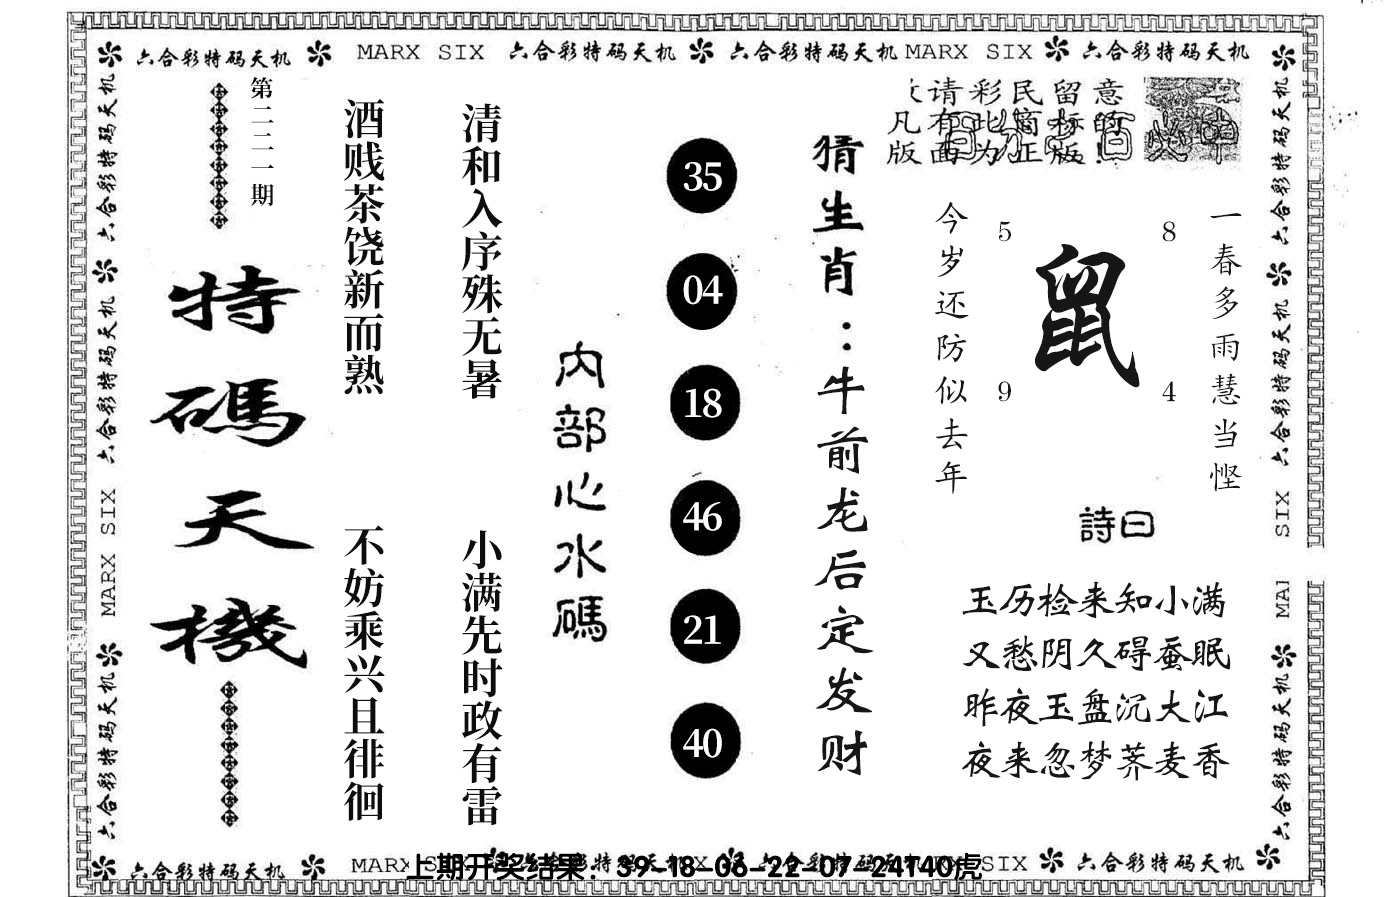 六合彩特码天机 MARX SIX 六合彩特码天机 六合彩特码天机 MARX SIX 六合彩特码天机
第二二二一期
特碼天機
酒贱茶饶新而熟 不妨乘兴且徘徊
清和入序殊无暑 小满先时政有雷
内部心水碼
35
04
18
46
21
40
猜生肖：牛前龙后定发财
请彩民留意
凡有此窗标的
版面为正版！
今岁还防似去年
5 8
鼠
9 4
一春多雨慧当悭
詩曰
玉历检来知小满
又愁阴久碍蚕眠
昨夜玉盘沉大江
夜来忽梦荞麦香
六合彩特码天机 六合彩特码天机 MARX SIX 六合彩特码天机
六合彩特码天机 六合彩特码天机 SIX MAI 六合彩特码天机
六合彩特码天机 MARX SIX 六合彩特码天机
上期开奖结果：39-18-06-22-07-24T40虎